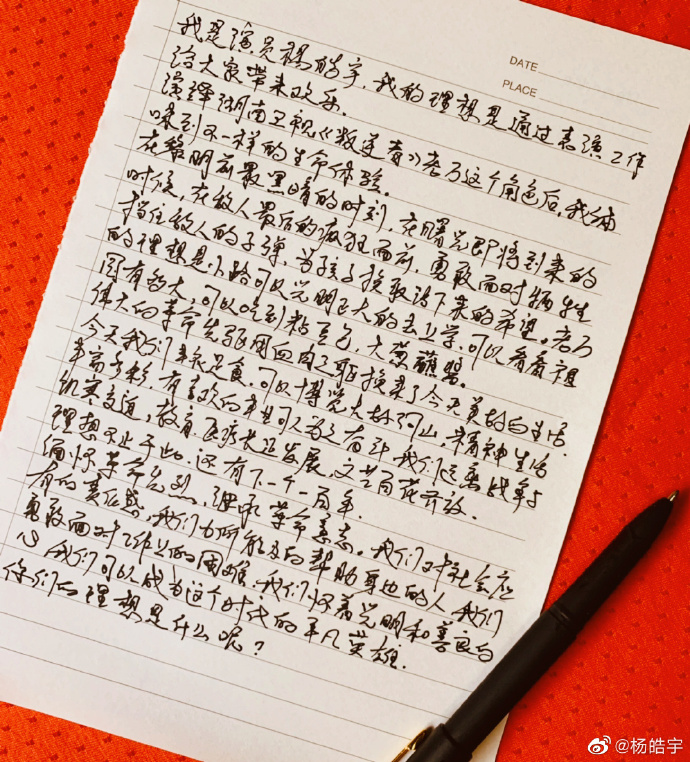 DATE
PLACE
我是演员杨皓宇,我的理想是通过表演工作
给大家带来欢乐.
演绎湖南卫视《叛逆者》老万这个角色后,我体
味到不一样的生命体验.
在黎明前最黑暗的时刻,在曙光即将到来的
时候,在敌人最后的疯狂面前,勇敢面对牺牲
挡住敌人的子弹,为孩子换取活下来的希望.老万
的理想是小路可以光明正大的去上学,可以看看祖
国有多大,可以吃到粘豆包,大葱蘸酱.
伟大的革命先驱用血肉之躯换来了今天美好的生活.
今天我们丰衣足食,可以博览大好河山,精神生活
丰富多彩,有喜欢的事业可以为之奋斗,我们远离战争与
饥寒交迫,教育医疗长足发展,文艺百花齐放.
理想不止于此,还有下一个一百年.
缅怀革命先烈,继承革命意志.我们对社会应
有的责任感,我们力所能及的帮助身边的人,我们
勇敢面对工作上的困难,我们怀着光明和善良的
心,我们可以成为这个时代的平凡英雄.
你们的理想是什么呢?
@杨皓宇